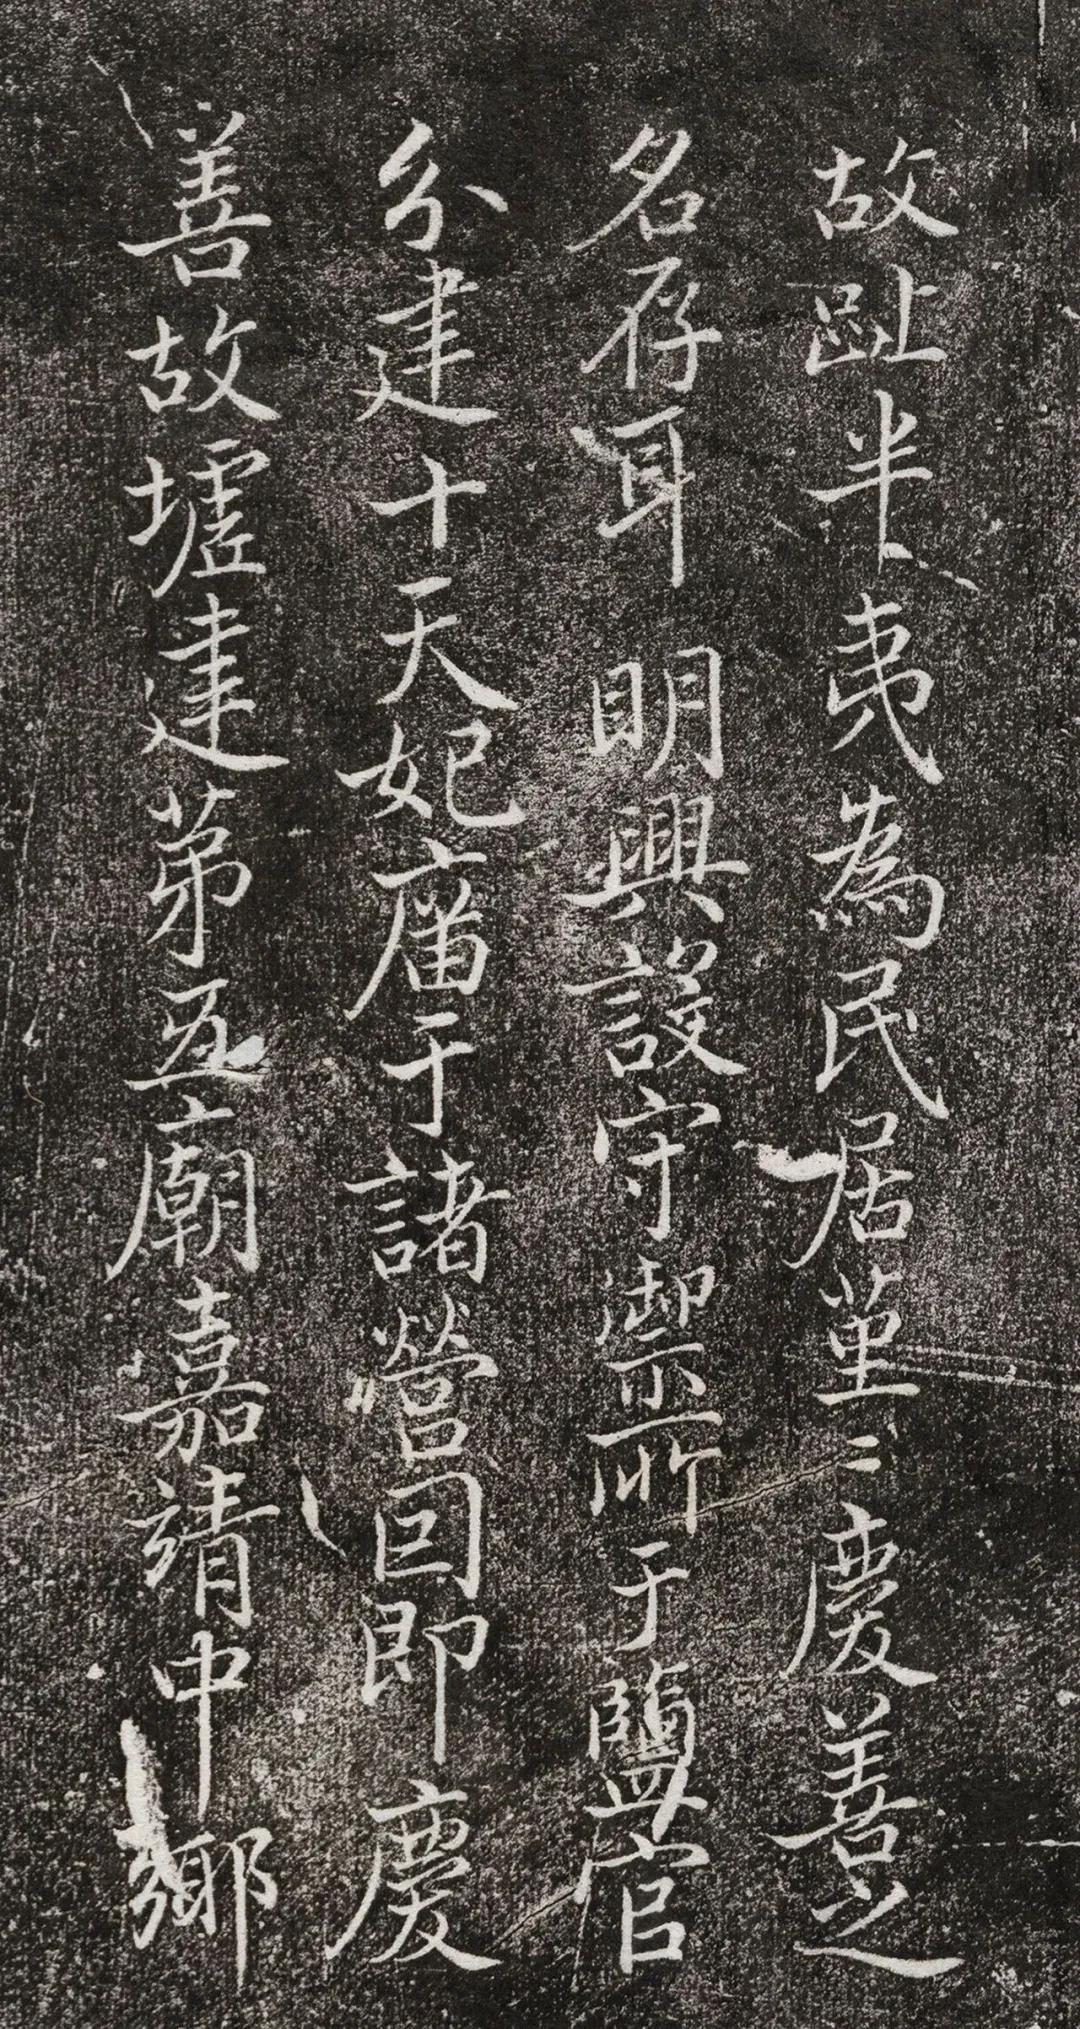 故趾半夷為民居堇〻慶善之
名存耳　明興設守禦所于鹽官
分建十天妃庿于諸營囙即慶
善故墟建苐五廟嘉靖中鄉